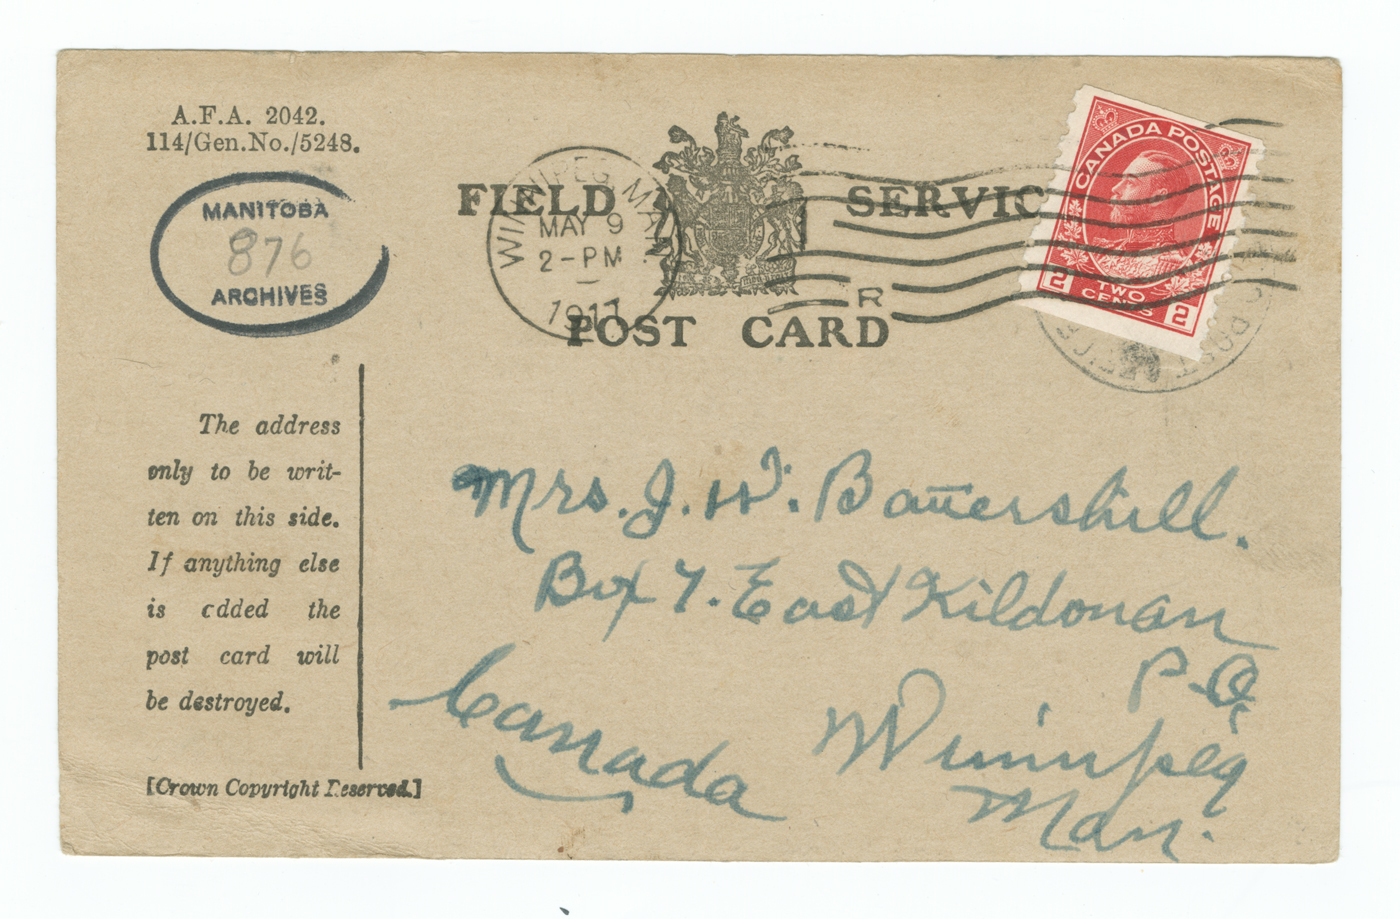 A.F.A. 2042.
114/Gen.No./5248.
MANITOBA
876
ARCHIVES
FIELD SERVIC
WINNIPEG MAN.
MAY 9
2-PM
1917
R
POST CARD
CANADA POSTAGE
2 TWO CENTS 2
The address
only to be writ-
ten on this side.
If anything else
is cdded the
post card will
be destroyed.
[Crown Copyright Reserved.]
Mrs. J. W. Battershill.
Box 7. East Kildonan
P.O.
Winnipeg
Man.
Canada